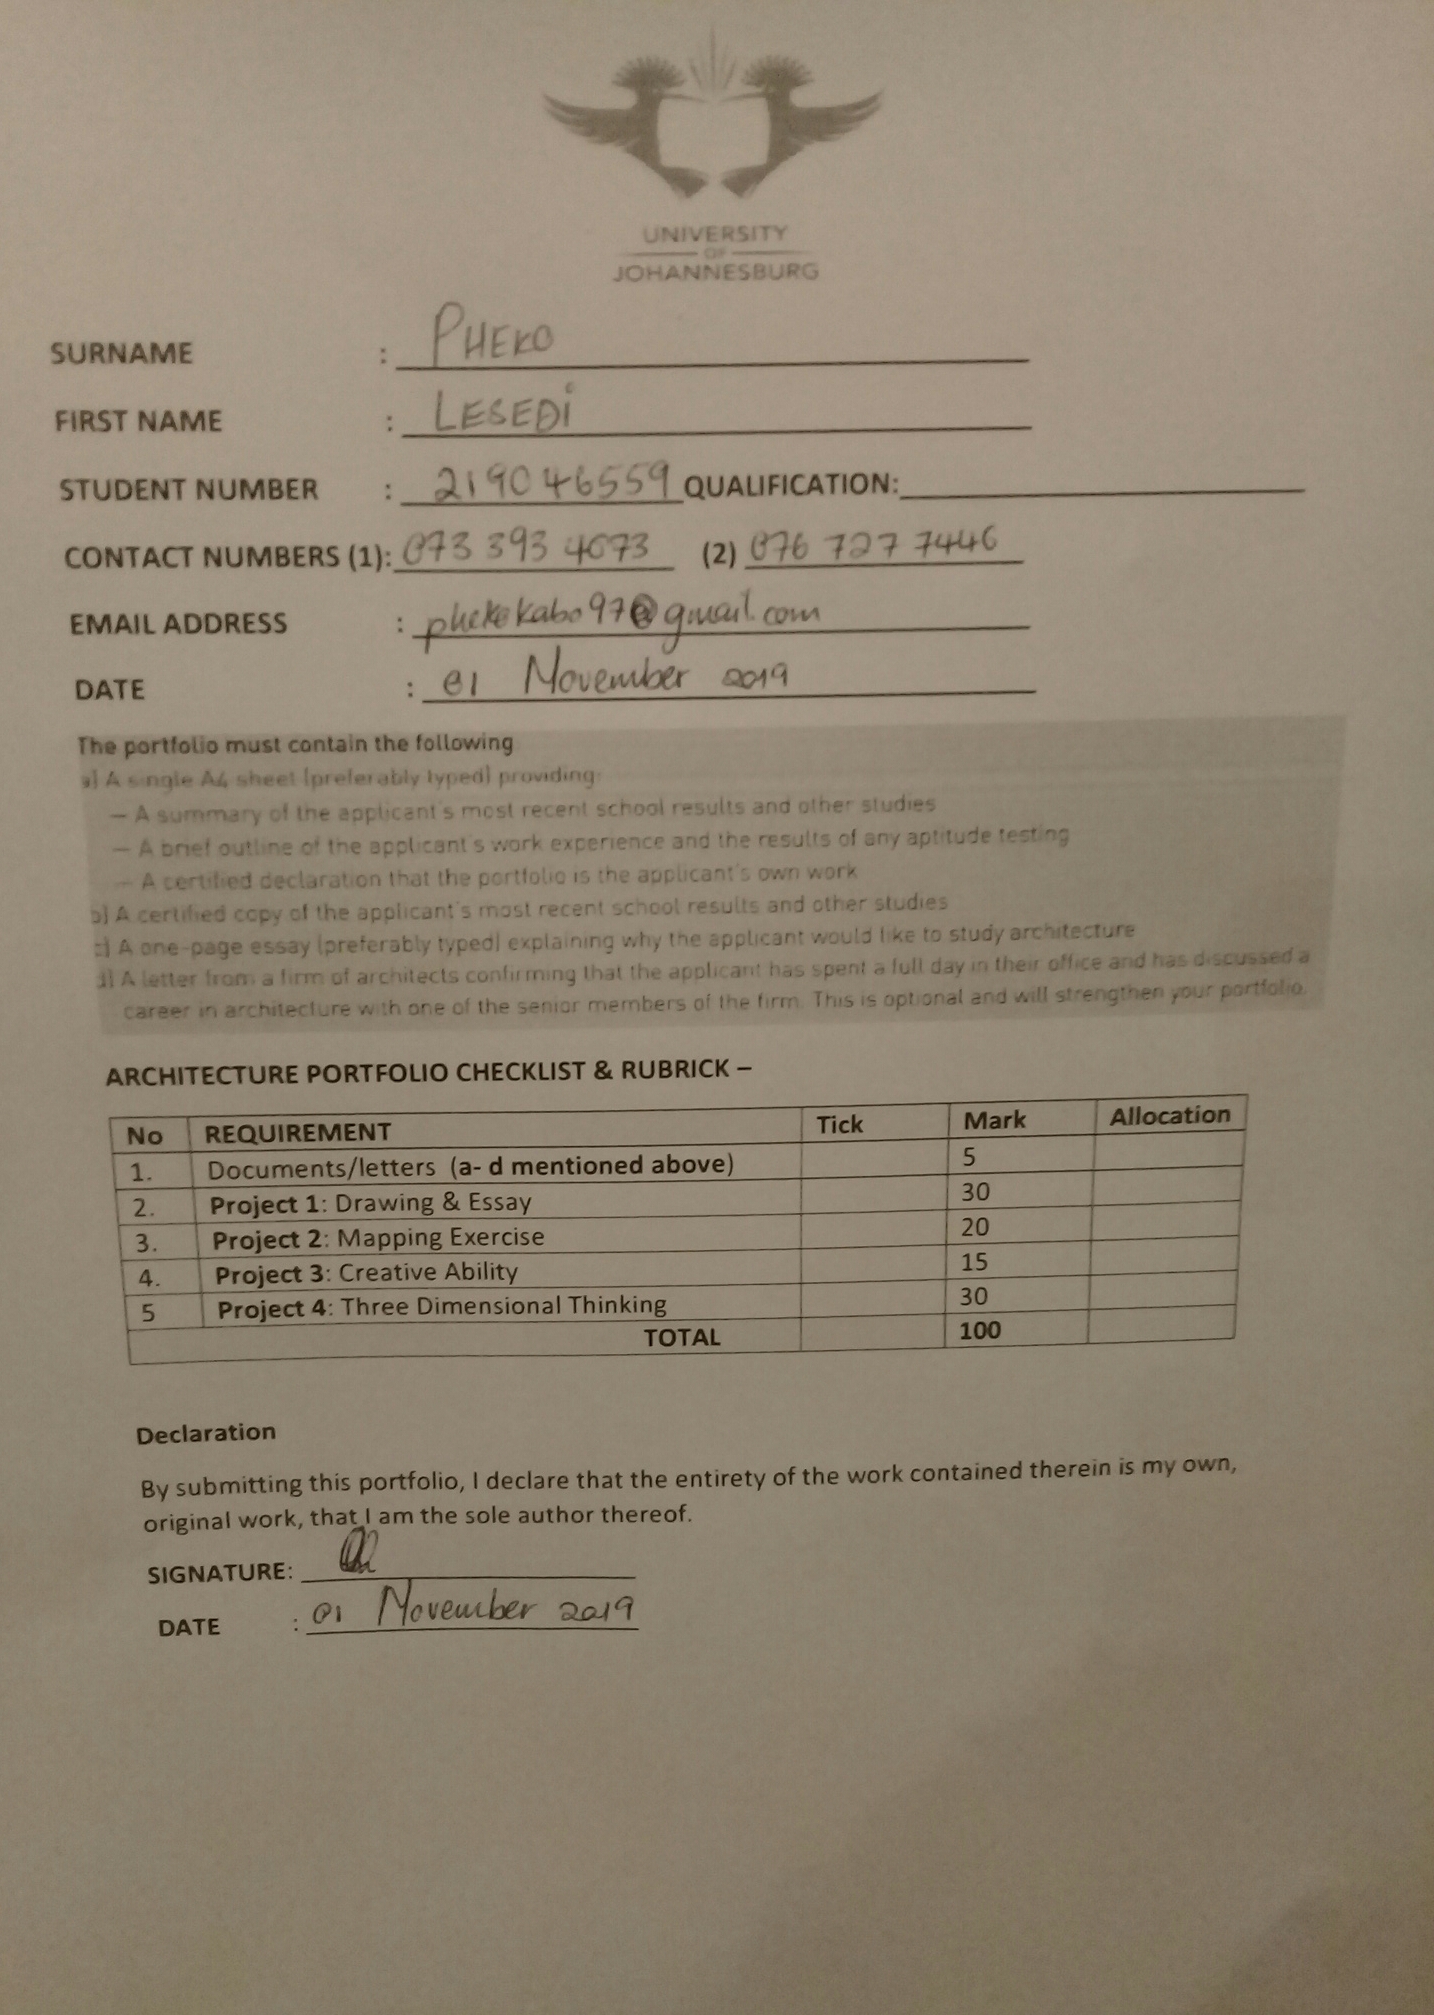 UNIVERSITY
OF
JOHANNESBURG
SURNAME : PHEKO
FIRST NAME : LESEDi
STUDENT NUMBER : 219046559 QUALIFICATION:
CONTACT NUMBERS (1): 073 393 4073 (2) 076 727 7446
EMAIL ADDRESS : phekokabo97@gmail.com
DATE : 01 November 2019
The portfolio must contain the following
a) A single A4 sheet (preferably typed) providing:
— A summary of the applicant's most recent school results and other studies
— A brief outline of the applicant's work experience and the results of any aptitude testing
— A certified declaration that the portfolio is the applicant's own work
b) A certified copy of the applicant's most recent school results and other studies
c) A one-page essay (preferably typed) explaining why the applicant would like to study architecture
d) A letter from a firm of architects confirming that the applicant has spent a full day in their office and has discussed a
career in architecture with one of the senior members of the firm. This is optional and will strengthen your portfolio.
ARCHITECTURE PORTFOLIO CHECKLIST & RUBRICK –
No REQUIREMENT Tick Mark Allocation
1. Documents/letters (a- d mentioned above) 5
2. Project 1: Drawing & Essay 30
3. Project 2: Mapping Exercise 20
4. Project 3: Creative Ability 15
5 Project 4: Three Dimensional Thinking 30
TOTAL 100
Declaration
By submitting this portfolio, I declare that the entirety of the work contained therein is my own,
original work, that I am the sole author thereof.
SIGNATURE:
DATE : 01 November 2019